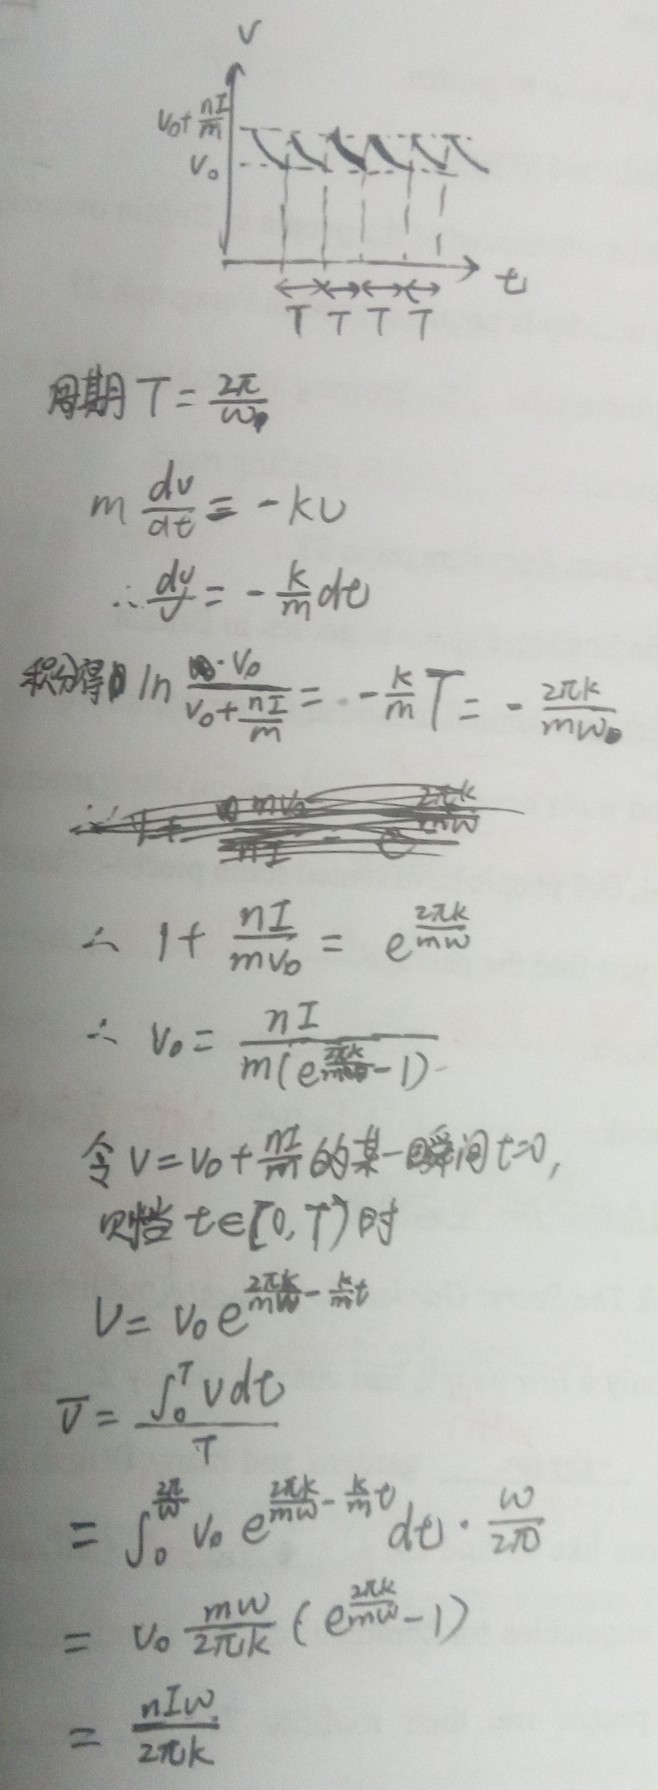 V
v₀+nI/m
v₀
t
T T T T
周期 T = 2π/ω
m dv/dt = -kv
∴ dv/v = -k/m dt
积分得 ln v₀/(v₀+nI/m) = -k/m T = -2πk/(mω)
∴ 1 + nI/(mv₀) = e^(2πk/(mω))
∴ v₀ = nI/(m(e^(2πk/(mω)) - 1))
令 v = v₀ + nI/m 的某一瞬间 t=0,
则当 t∈[0,T) 时
v = v₀ e^(2πk/(mω) - k/m t)
v̅ = ∫₀ᵀ v dt / T
= ∫₀^(2π/ω) v₀ e^(2πk/(mω) - k/m t) dt · ω/(2π)
= v₀ mω/(2πk) (e^(2πk/(mω)) - 1)
= nIω/(2πk)